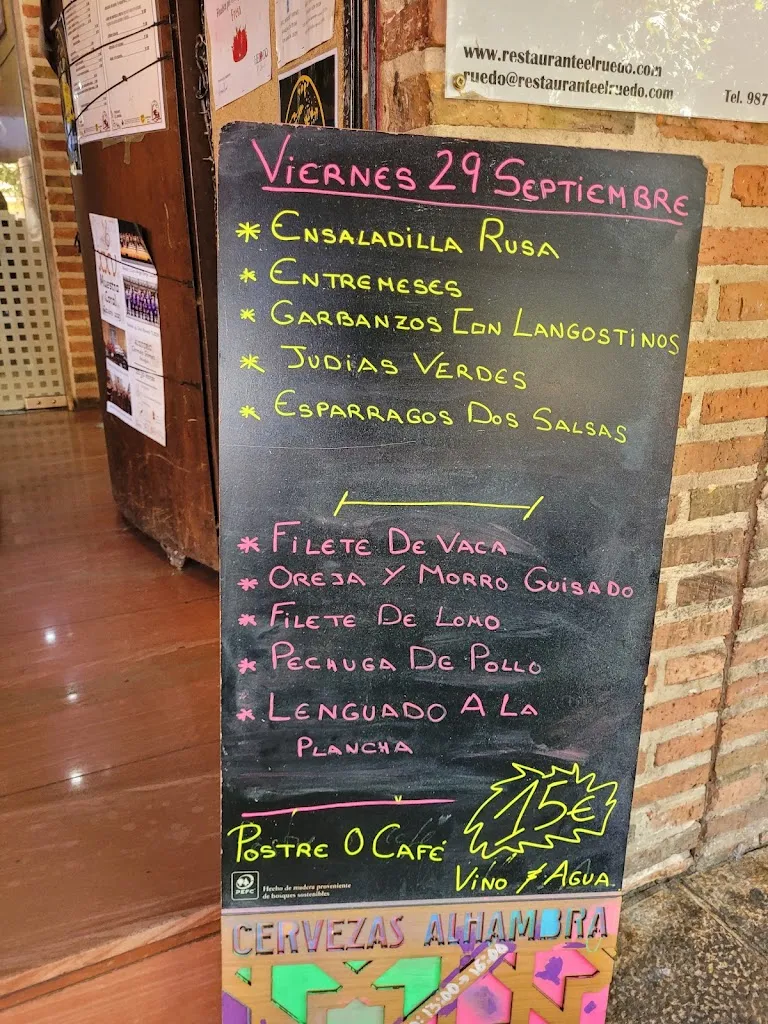 www.restauranteelruedo.com
ruedo@restauranteelruedo.com
Tel. 987
VIERNES 29 SEPTIEMBRE
* ENSALADILLA RUSA
* ENTREMESES
* GARBANZOS CON LANGOSTINOS
* JUDIAS VERDES
* ESPARRAGOS DOS SALSAS
* FILETE DE VACA
* OREJA Y MORRO GUISADO
* FILETE DE LOMO
* PECHUGA DE POLLO
* LENGUADO A LA
PLANCHA
15€
POSTRE O CAFÉ
VINO Y AGUA
PEFC
Hecho de madera proveniente
de bosques sostenibles
CERVEZAS ALHAMBRA